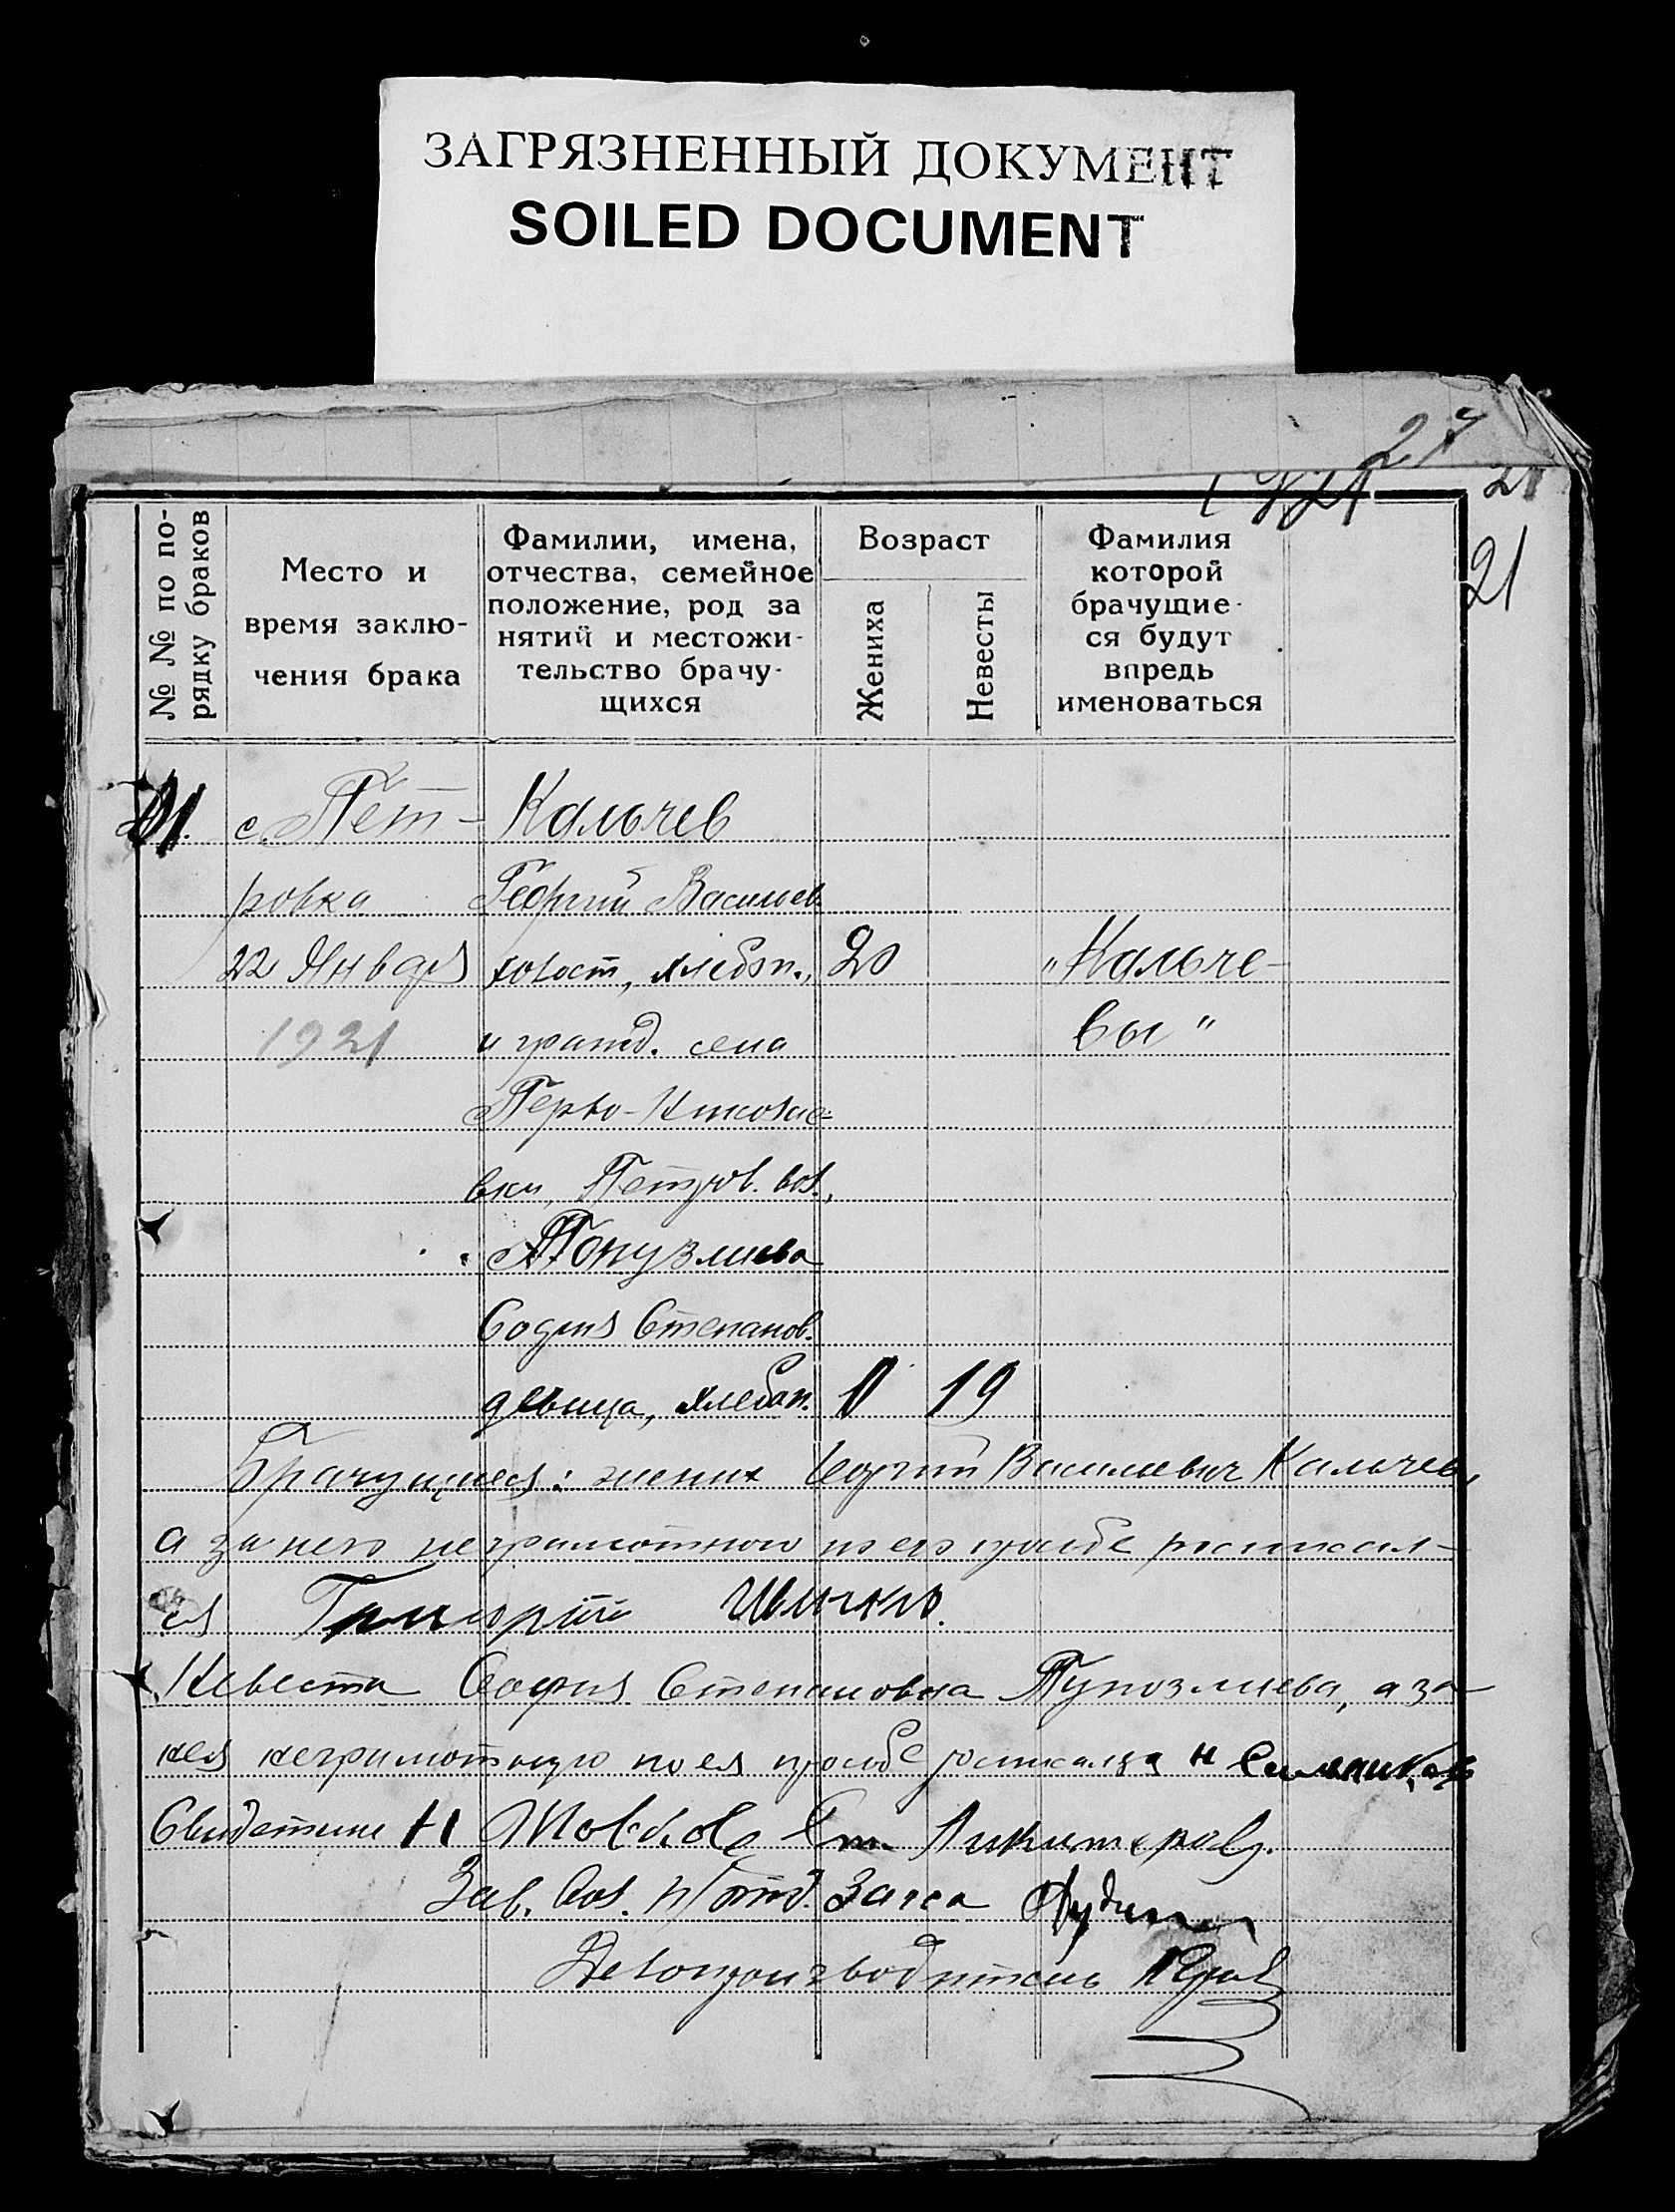 ЗАГРЯЗНЕННЫЙ ДОКУМЕНТ
SOILED DOCUMENT
27
21
21
№ № по по-
рядку браков
Место и
время заклю-
чения брака
Фамилии, имена,
отчества, семейное
положение, род за
нятий и местожи-
тельство брачу-
щихся
Возраст
Жениха
Невесты
Фамилия
которой
брачущие-
ся будут
впредь
именоваться
21. с. Пет- Кальчев
ровка Георгий Васильев
22 Января холост, хлебоп., 20 „Кальче-
1921 и гражд. села вы"
Перво-Николае-
вки, Петров. вол.,
Топузлиева
София Степанов.
девица, хлебоп. 19
Брачущиеся: жених Георгий Васильевич Кальчев,
а за него неграмотного по его просьбе расписал-
ся Григорий
Невеста София Степановна Тупозлиева, а за
нея неграмотную по ея просьбе росписался Н
Свидетели Н
Зав. Вол. п/отд. Загса
Делопроизводитель